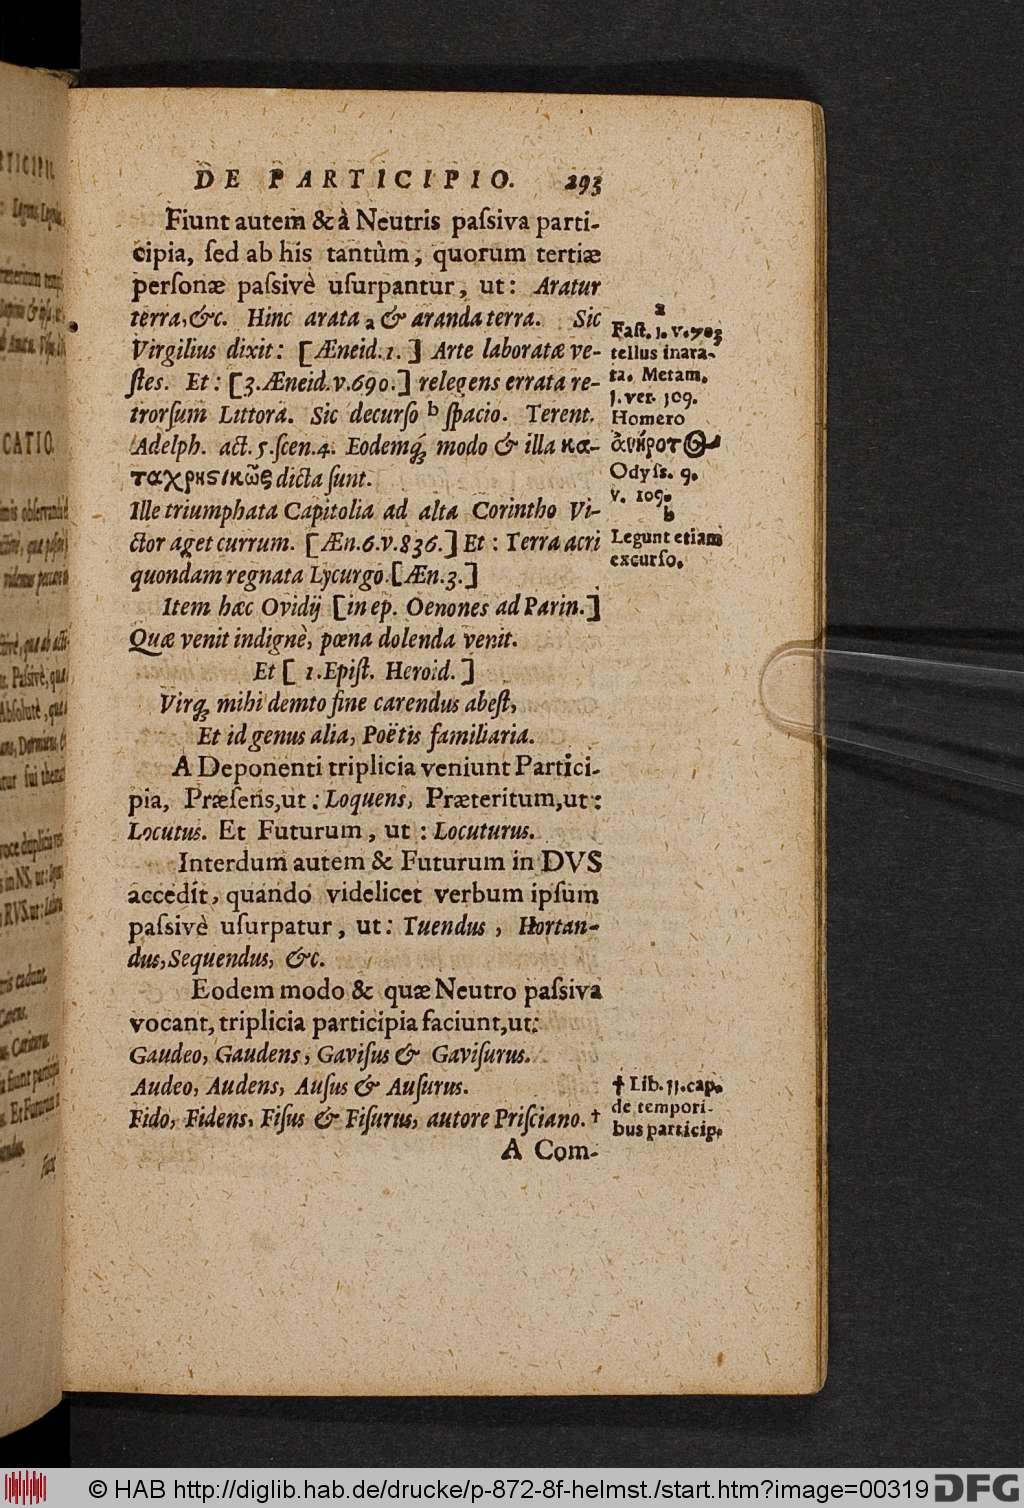 DE PARTICIPIO. 293
Fiunt autem & à Neutris paſsiva parti-
cipia, ſed ab his tantùm, quorum tertiæ
perſonæ paſsivè uſurpantur, ut: Aratur
terra, &c. Hinc arata a & aranda terra. Sic
Virgilius dixit: [Æneid. 1.] Arte laboratæ ve-
ſtes. Et: [3. Æneid. v. 690.] relegens errata re-
trorſum Littora. Sic decurſo b ſpacio. Terent.
Adelph. act. 5. ſcen. 4. Eodemq́ue modo & illa κα-
ταχρηστικῶς dicta ſunt.
Ille triumphata Capitolia ad alta Corintho Vi-
ctor aget currum. [Æn. 6. v. 836.] Et: Terra acri
quondam regnata Lycurgo. [Æn. 3.]
Item hæc Ovidij [in ep. Oenones ad Parin.]
Quæ venit indignè, pœna dolenda venit.
Et [1. Epiſt. Heroid.]
Virq; mihi demto fine carendus abeſt,
Et id genus alia, Poëtis familiaria.
A Deponenti triplicia veniunt Partici-
pia, Præſens, ut: Loquens, Præteritum, ut:
Locutus. Et Futurum, ut: Locuturus.
Interdum autem & Futurum in DVS
accedit, quando videlicet verbum ipſum
paſsivè uſurpatur, ut: Tuendus, Hortan-
dus, Sequendus, &c.
Eodem modo & quæ Neutro paſsiva
vocant, triplicia participia faciunt, ut:
Gaudeo, Gaudens, Gaviſus & Gaviſurus.
Audeo, Audens, Auſus & Auſurus.
Fido, Fidens, Fiſus & Fiſurus, autore Priſciano. †
A Com-
a
Faſt. 1. v. 703
tellus inara-
ta. Metam.
1. ver. 109.
Homero
ἀνήροτος
Odyſſ. 9.
v. 109.
b
Legunt etiam
excurſo.
† Lib. 11. cap.
de tempori-
bus particip.
© HAB http://diglib.hab.de/drucke/p-872-8f-helmst./start.htm?image=00319
DFG